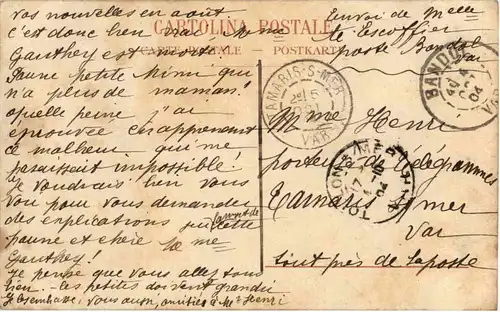 CARTOLINA POSTALE
CARTE POSTALE - POSTKARTE
vos nouvelles en août
c'est donc bien vrai Mme
Gauthey est morte
Pauvre petite Mimi qui
n'a plus de maman!
quelle peine j'ai
éprouvée en apprenant
ce malheur qui me
paraissait impossible!
Je voudrais bien vous
voir pour vous demander
des explications sur cette
jeune et chère Mme
Gauthey!
Je pense que vous allez tous
bien - Les petites doivent grandir
Je t'embrasse, vous aussi, amitiés à Mr Henri
Envoi de Melle
Escoffier
poste Bandol
Var
BANDOL
04
VAR
TAMARIS-S-MER
VAR
TOULON
04
Mme Henri
porteur de télégrammes
Tamaris s/ mer
Var
tout près de la poste